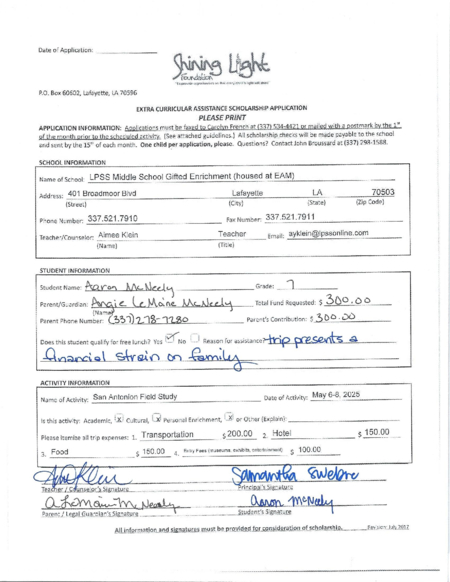 Date of Application:
Shining Light
Foundation
P.O. Box 60602, Lafayette, LA 70596
EXTRA CURRICULAR ASSISTANCE SCHOLARSHIP APPLICATION
PLEASE PRINT
APPLICATION INFORMATION: Applications must be faxed to Carolyn French at (337) 504-4421 or mailed with a postmark by the 1st
of the month prior to the scheduled activity. (See attached guidelines.) All scholarship checks will be made payable to the school
and sent by the 15th of each month. One child per application, please. Questions? Contact John Broussard at (337) 298-1588.
SCHOOL INFORMATION
Name of School: LPSS Middle School Gifted Enrichment (housed at EAM)
Address: 401 Broadmoor Blvd Lafayette LA 70503
(Street) (City) (State) (Zip Code)
Phone Number: 337.521.7910 Fax Number: 337.521.7911
Teacher/Counselor: Aimee Klein Teacher Email: ayklein@lpssonline.com
(Name) (Title)
STUDENT INFORMATION
Student Name: Aaron McNeely Grade: 7
Parent/Guardian: Angie LeMaine McNeely Total Fund Requested: $ 300.00
(Name)
Parent Phone Number: (337) 278-7280 Parent's Contribution: $ 300.00
Does this student qualify for free lunch? Yes No Reason for assistance? trip presents a
financial strain on family
ACTIVITY INFORMATION
Name of Activity: San Antonion Field Study Date of Activity: May 6-8, 2025
Is this activity: Academic, X Cultural, X Personal Enrichment, X or Other (Explain):
Please itemize all trip expenses: 1. Transportation $ 200.00 2. Hotel $ 150.00
3. Food $ 150.00 4. Entry Fees (museums, exhibits, entertainment) $ 100.00
Teacher / Counselor's Signature Principal's Signature
Aaron McNeely
Parent / Legal Guardian's Signature Student's Signature
All information and signatures must be provided for consideration of scholarship.